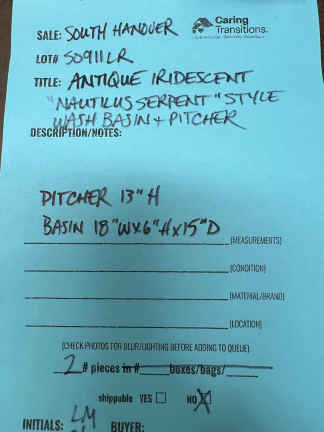 SALE: SOUTH HANOVER
Caring
Transitions.
LOT# SO911LR
TITLE: ANTIQUE IRIDESCENT
"NAUTILUS SERPENT" STYLE
WASH BASIN + PITCHER
DESCRIPTION/NOTES:
PITCHER 13"H
BASIN 18"WX6"HX15"D
(MEASUREMENTS)
(CONDITION)
(MATERIAL/BRAND)
(LOCATION)
(CHECK PHOTOS FOR BLUR/LIGHTING BEFORE ADDING TO QUEUE)
2 # pieces in # boxes/bags/
shippable YES NO X
INITIALS: LM BUYER: